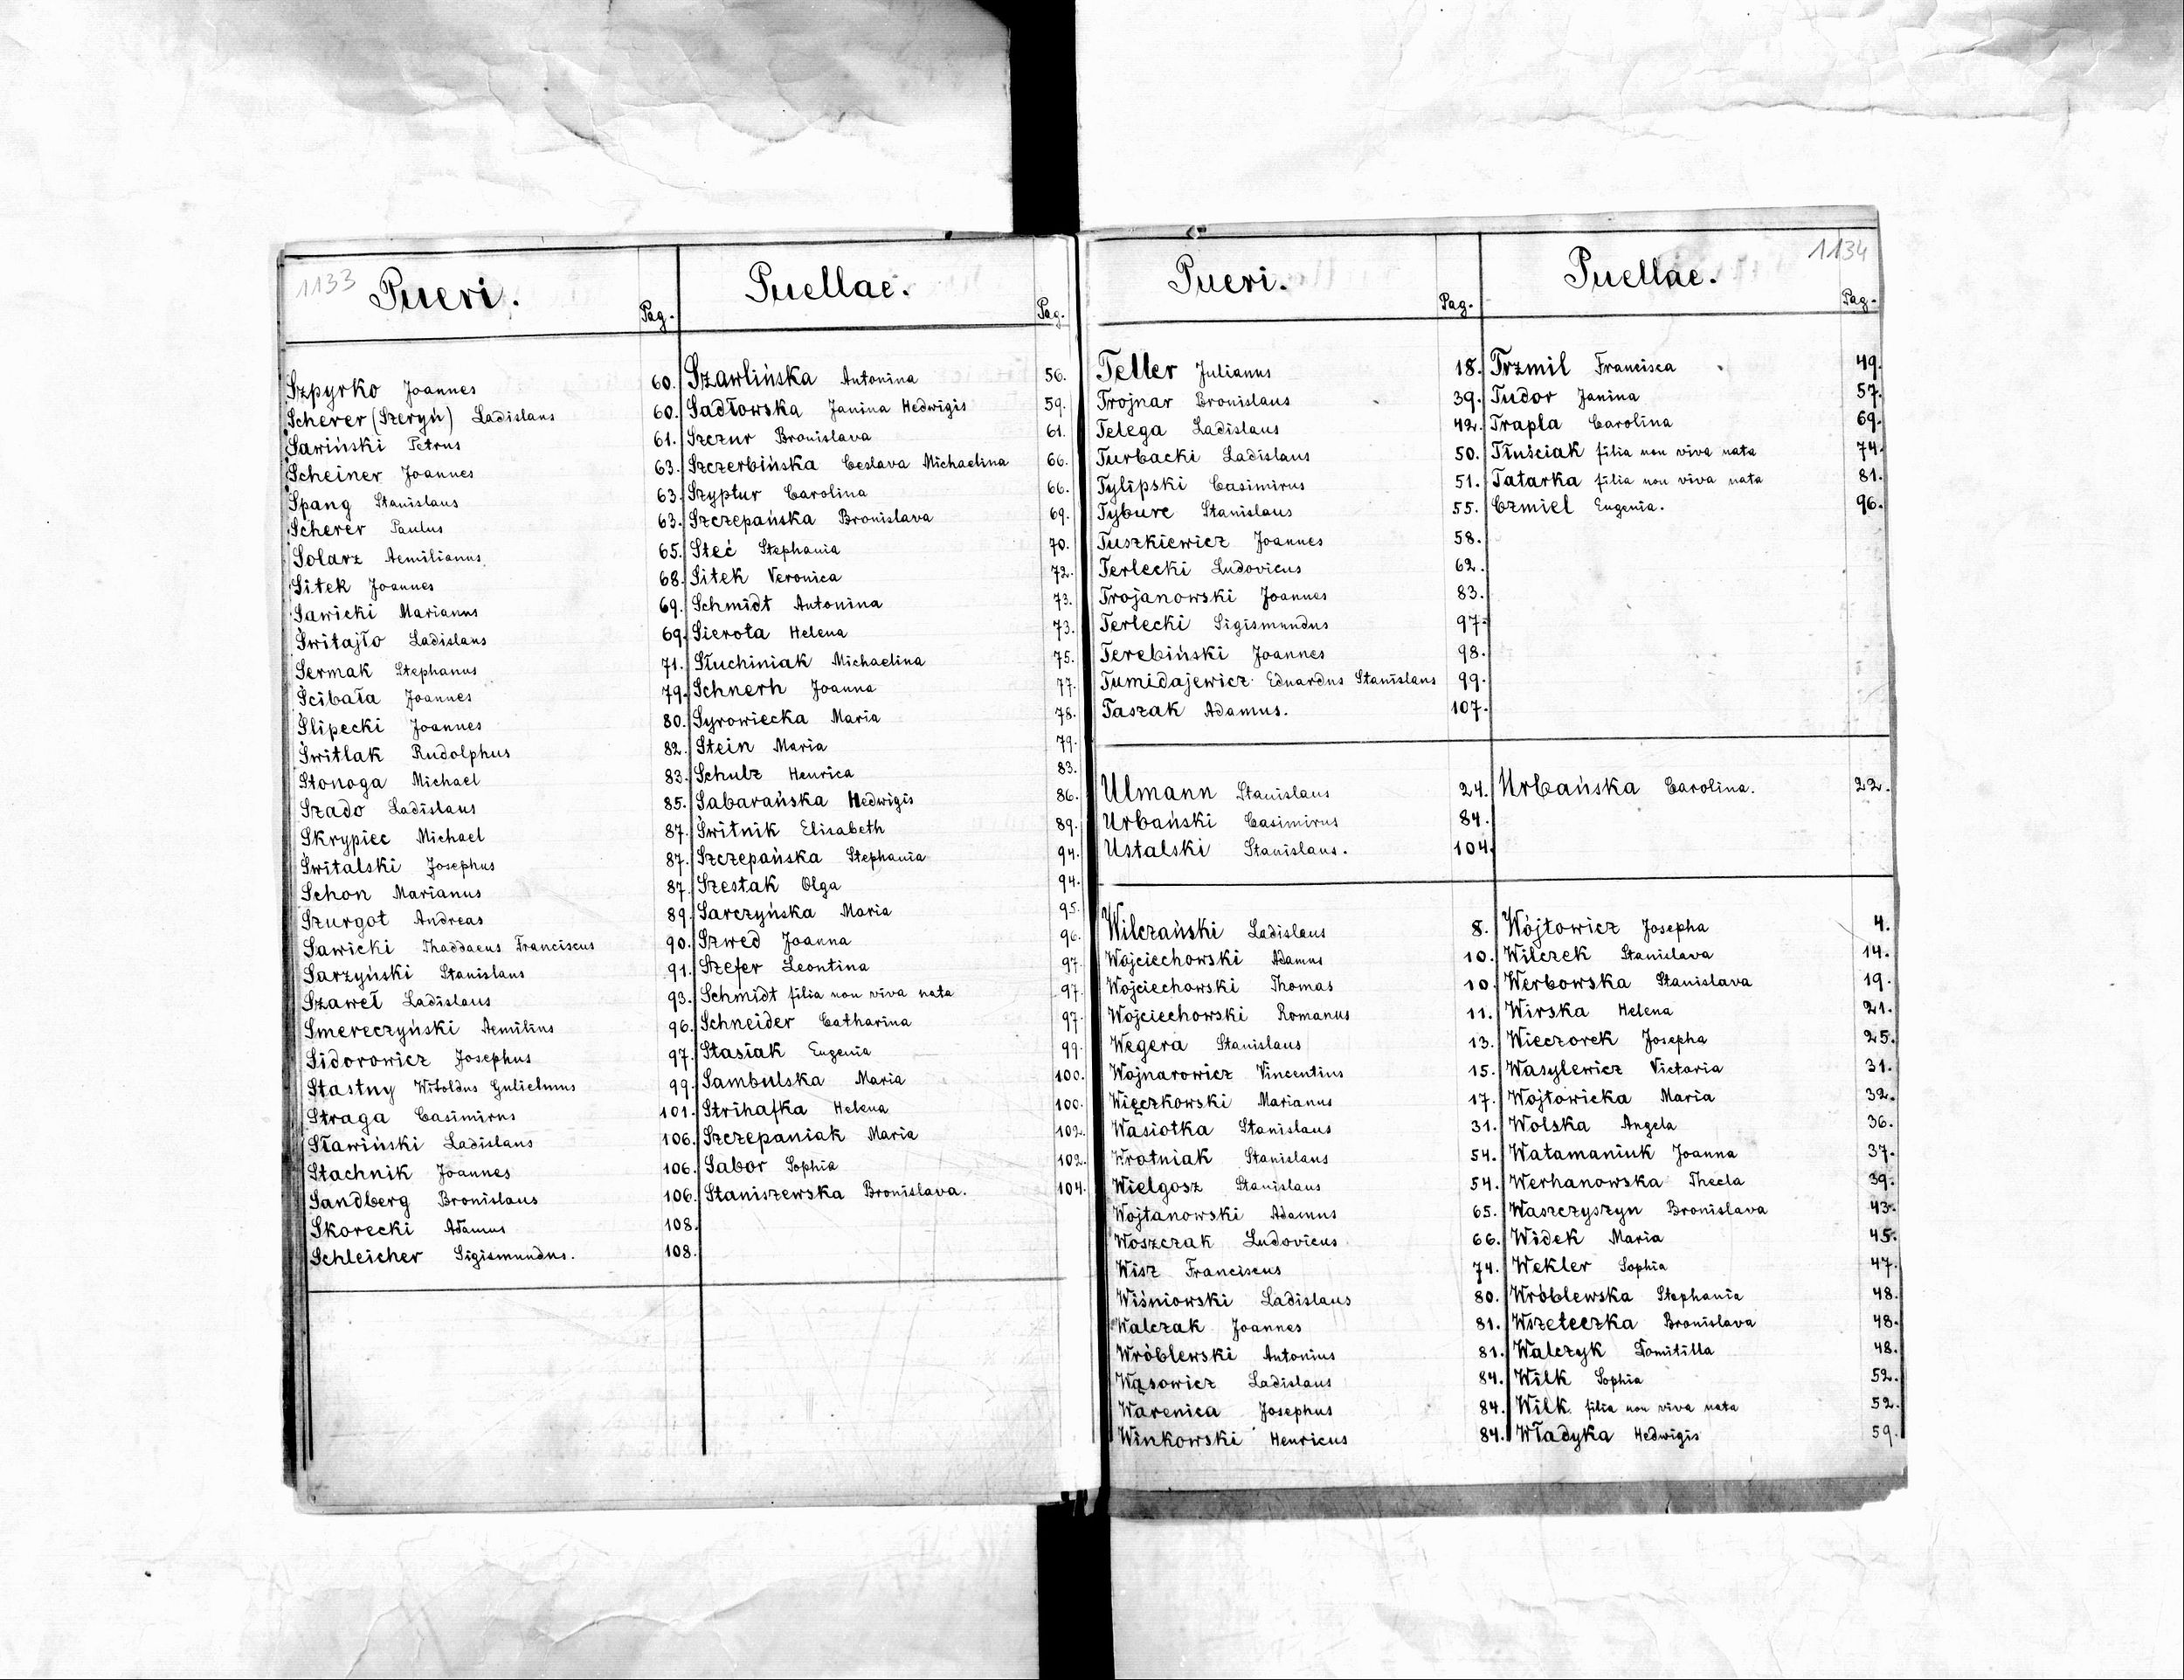 1133
Pueri.
Pag.
Szpyrko Joannes 60.
Scherer (Szeryn) Ladislaus 60.
Sawiński Petrus 61.
Scheiner Joannes 63.
Spang Stanislaus 63.
Scherer Paulus 63.
Solarz Aemilianus 65.
Sitek Joannes 68.
Sawicki Marianus 69.
Świtajło Ladislaus 69.
Sermak Stephanus 71.
Ścibała Joannes 79.
Ślipecki Joannes 80.
Świtlak Rudolphus 82.
Stonoga Michael 83.
Szado Ladislaus 85.
Skrypiec Michael 87.
Świtalski Josephus 87.
Schon Marianus 87.
Szurgot Andreas 89.
Sawicki Thaddaeus Franciscus 90.
Sarzyński Stanislaus 91.
Szaweł Ladislaus 93.
Smereczyński Aemilius 96.
Sidorowicz Josephus 97.
Stastny Witoldus Gulielmus 99.
Straga Casimirus 101.
Sławiński Ladislaus 106.
Stachnik Joannes 106.
Sandberg Bronislaus 106.
Skorecki Adamus 108.
Schleicher Sigismundus. 108.
Puellae.
Pag.
Szawlińska Antonina 56.
Sadłowska Janina Hedwigis 59.
Szczur Bronislava 61.
Szczerbińska Ceslava Michaelina 66.
Szyptur Carolina 66.
Szczepańska Bronislava 69.
Steć Stephania 70.
Sitek Veronica 72.
Schmidt Antonina 73.
Sierota Helena 73.
Słuchiniak Michaelina 75.
Schnerh Joanna 77.
Syrowiecka Maria 78.
Stein Maria 79.
Schulz Henrica 83.
Sabarańska Hedwigis 86.
Świtnik Elisabeth 89.
Szczepańska Stephania 94.
Szestak Olga 94.
Sarczyńska Maria 95.
Szwed Joanna 96.
Szefer Leontina 97.
Schmidt filia non viva nata 97.
Schneider Catharina 97.
Stasiak Eugenia 99.
Sambulska Maria 100.
Strihafka Helena 100.
Szczepaniak Maria 102.
Sabor Sophia 102.
Staniszewska Bronislava. 104.
Pueri.
Pag.
Teller Julianus 18.
Trojnar Bronislaus 39.
Telega Ladislaus 42.
Turbacki Ladislaus 50.
Tylipski Casimirus 51.
Tybure Stanislaus 55.
Tuszkiewicz Joannes 58.
Terlecki Ludovicus 62.
Trojanowski Joannes 83.
Terlecki Sigismundus 97.
Terebiński Joannes 98.
Tumidajewicz Eduardus Stanislaus 99.
Taszak Adamus. 107.
Ulmann Stanislaus 24.
Urbański Casimirus 84.
Ustalski Stanislaus. 104.
Wilczański Ladislaus 8.
Wojciechowski Adamus 10.
Wojciechowski Thomas 10.
Wojciechowski Romanus 11.
Wegera Stanislaus 13.
Wojnarowicz Vincentius 15.
Więczkowski Marianus 17.
Wasiotka Stanislaus 31.
Wrotniak Stanislaus 54.
Wielgosz Stanislaus 54.
Wojtanowski Adamus 65.
Woszczak Ludovicus 66.
Wisz Franciscus 74.
Wiśniowski Ladislaus 80.
Walczak Joannes 81.
Wróblewski Antonius 81.
Wąsowicz Ladislaus 84.
Warenica Josephus 84.
Winkowski Henricus 84.
1134
Puellae.
Pag.
Trzmil Francisca 49.
Tudor Janina 57.
Trapla Carolina 69.
Tłuściak filia non viva nata 74.
Tatarka filia non viva nata 81.
Czmiel Eugenia. 96.
Urbańska Carolina. 22.
Wójtowicz Josepha 4.
Wilczek Stanislava 14.
Werbowska Stanislava 19.
Wirska Helena 21.
Wieczorek Josepha 25.
Wasylewicz Victaria 31.
Wojtowicka Maria 32.
Wolska Angela 36.
Watamaniuk Joanna 37.
Werhanowska Thecla 39.
Waszczyszyn Bronislava 43.
Widek Maria 45.
Wekler Sophia 47.
Wróblewska Stephania 48.
Wszeteczka Bronislava 48.
Walczyk Domitilla 48.
Wilk Sophia 52.
Wilk filia non viva nata 52.
Władyka Hedwigis 59.